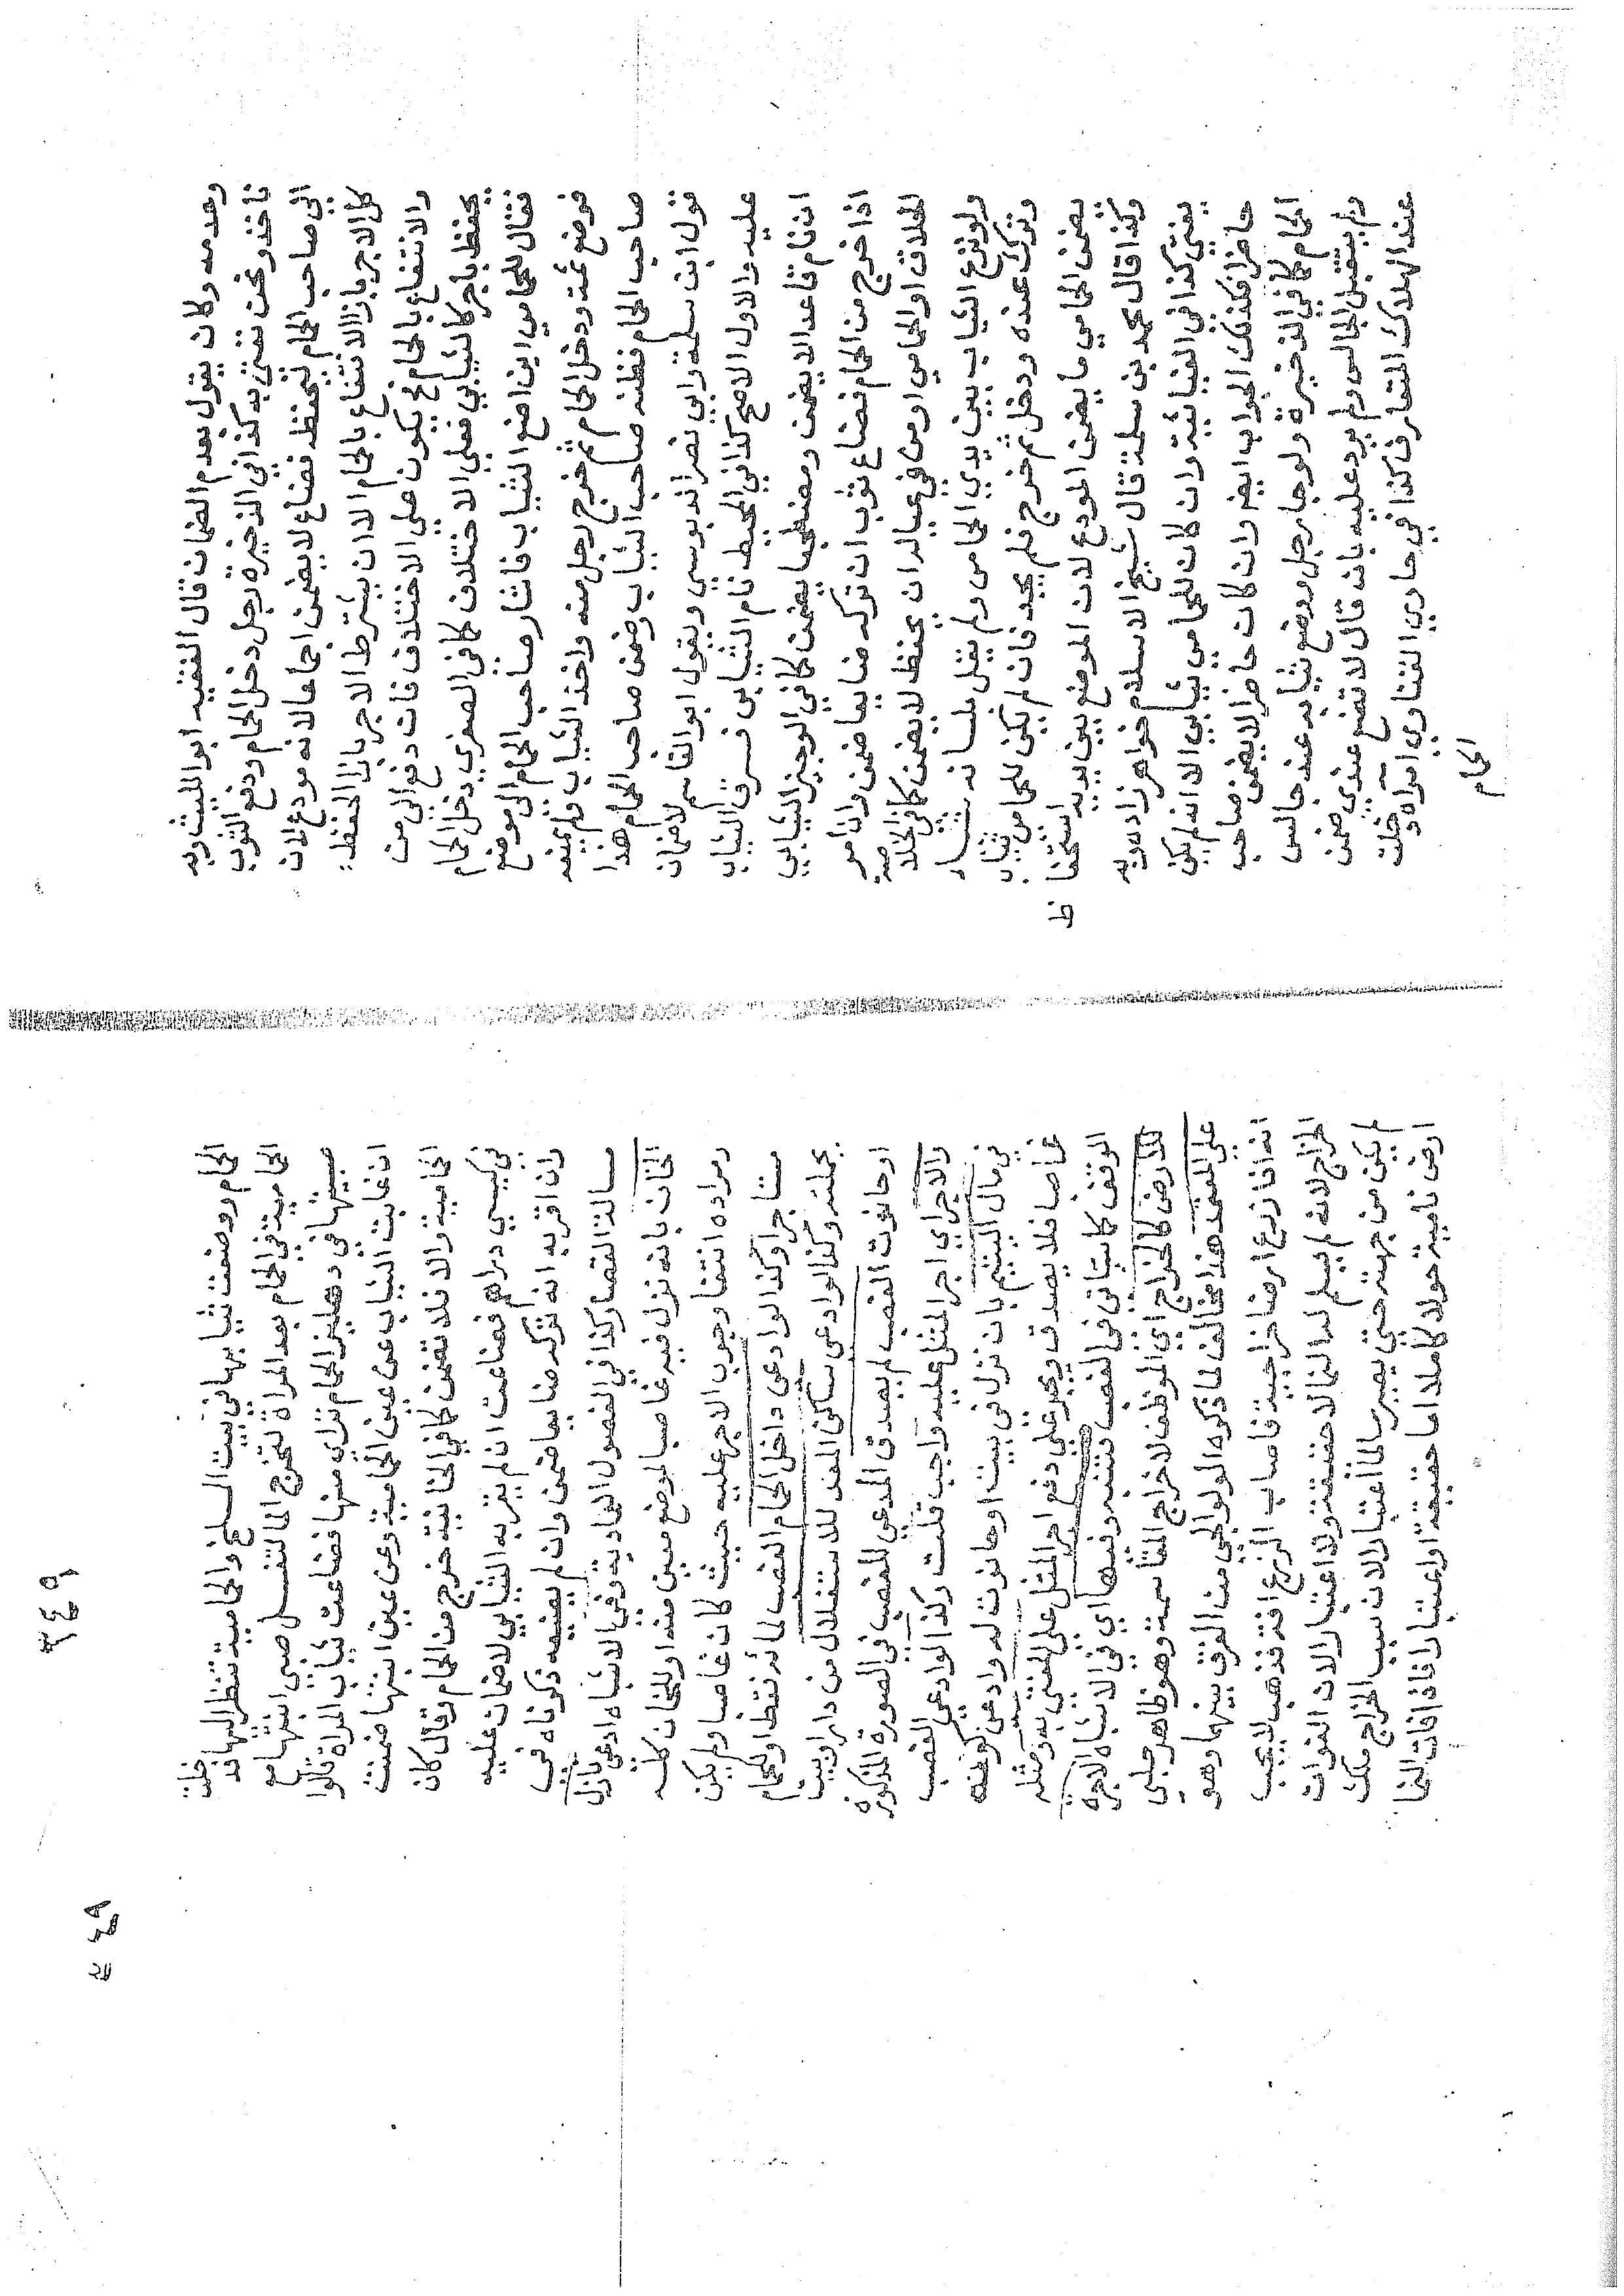 وعدمه وكان يقول بعدم الضمان قال الفقيه ابو الليث وبه
ناخذ ونحن نفتي به كذا في الذخيرة رجل دخل الحام ودفع الثوب
الي صاحب الحام ليحفظه فضاع لا يضمن اجماعا لانه مودع لان
كل الاجر بازا الانتفاع بالحام الا ان يشترط الاجر بازا الحفظ
والانتفاع بالحام فح يكون علي الاختلاف فان دفع الي من
يحفظ باجر كالثيابي فعلي الاختلاف كما في الصغري دخل الحام
فقال للحامي اين اضع الثياب فاشار صاحب الحام الي موضع
فوضع ثمة ودخل الحام ثم خرج رجل منه واخذ الثياب ولم يمنعه
صاحب الحام فظنه صاحب الثياب وضمن صاحب الحام هذا
قول ابن سلمة وابي نصر الدبوسي ويقول ابو القاسم لا ضمان
عليه والاول الاصح كذا في المحيط نام الثيابي فسرق الثياب
ان نام قاعدا لا يضمن ومضطجعا يضمن كما في الوجيز الثيابي
اذا خرج من الحام فضاع ثوب ان تركه ضايعا ضمن وان امر
الحلاق او الحامي او من في عياله ان يحفظ لا يضمن كما في الخلاصه
ولو نزع الثياب بين يدي الحامي ولم يقل بلسانه شيا
وترك عنده ودخل ثم خرج فلم يجد فان لم يكن للحامي ثيابي
يضمن الحامي ما يضمن المودع لان الموضع بين يديه استحفاظ
وكذا قال محمد بن سلمة قال شيخ الاسلام خواهر زاده وبه
يفتي كذا في الغياثية وان كان للحامي ثيابي الا انه لم يكن
حاضرا فكذلك الجواب ايضا وان كان حاضرا لا يضمن صاحب
الحام كما في الذخيرة ولو جا رجل ووضع ثيابه عند جالس
ولم يتقبل الجالس ولم يرد عليه بان قال لا تضع عندي ضمن
عند الهلاك المتعارف كذا في حاوي الفتاوي امراة دخلت
الحام
الحام ووضعت ثيابها في بيت السلخ والحامية تنظر اليها فدخلت
الحامية في الحام بعد المراة لتخرج الما لتغسل صبي ابنتها مع
صبيتها في دهليز الحام تراي منها فضاعت ثياب المراة قالوا
ان غابت الثياب عن عين الحامية وعن عين ابنتها ضمنت
الحامية والا فلا تضمن كما في الخانية خرج من الحام وقال كان
في كيسي دراهم فضاعت ان لم يقر به الثيابي لا ضمان عليه
وان اقر به انه تركه ضايعا ضمن وان لم يضيعه ذكرناه في
مسالة القصار كذا في الفصول العادية وفي الاشباه ادعي نازل
الخان بانه نزل فيه غاصبا لموضع معين منه او للخان كله
ومراده انتفا وجوب الاجر عليه حيث كان غاصبا ولم يكن
مستاجرا وكذا لو ادعي داخل الحام الغصب لما ئه فقط او للحام
بجملته وكذا لو ادعي ساكن المعد للاستغلال من دار او بيت
او حانوت الغصب لم يصدق المدعي للغصب في الصورة المذكورة
والاجر اي اجر المثل عليه واجب قلت وكذا لو ادعي الغصب
في مال اليتيم بان نزل في بيت او حانوت له وادعي كونه
غاصبا فلا يصدق ويجبر علي دفع اجر المثل علي المفتي به ومثله
الوقف كما ياتي في الغصب فتنبه وفيها اي في الاشباه الاجرة
للارض كالخراج اي الموظف لا خراج المقاسمة وهو ظاهر حلبي
علي المعتمد هذا مخالف لما ذكره الولوالجي من الفرق بينها وهو
انه اذا زرع ارضا خراجية فاصاب الزرع افة فذهب لا يجب
الخراج لانه لم يسلم له النما لا حقيقة ولا اعتبارا لان الفوات
لم يكن من جهته حتي يصير سالما اعتبارا لان سبب الخراج ملك
ارض نامية حولا كاملا اما حقيقة او اعتبارا فاذا فات النما
٣٤٩
٣٤٩